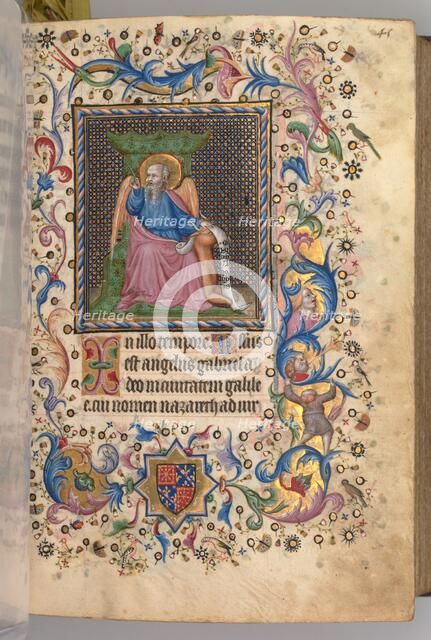 Heritage Heritage
Heritage Heritage Heritage
In illo tempore Missus
est angelus gabriel a
deo in ciuitatem galile
e. cui nomen nazareth ad uir